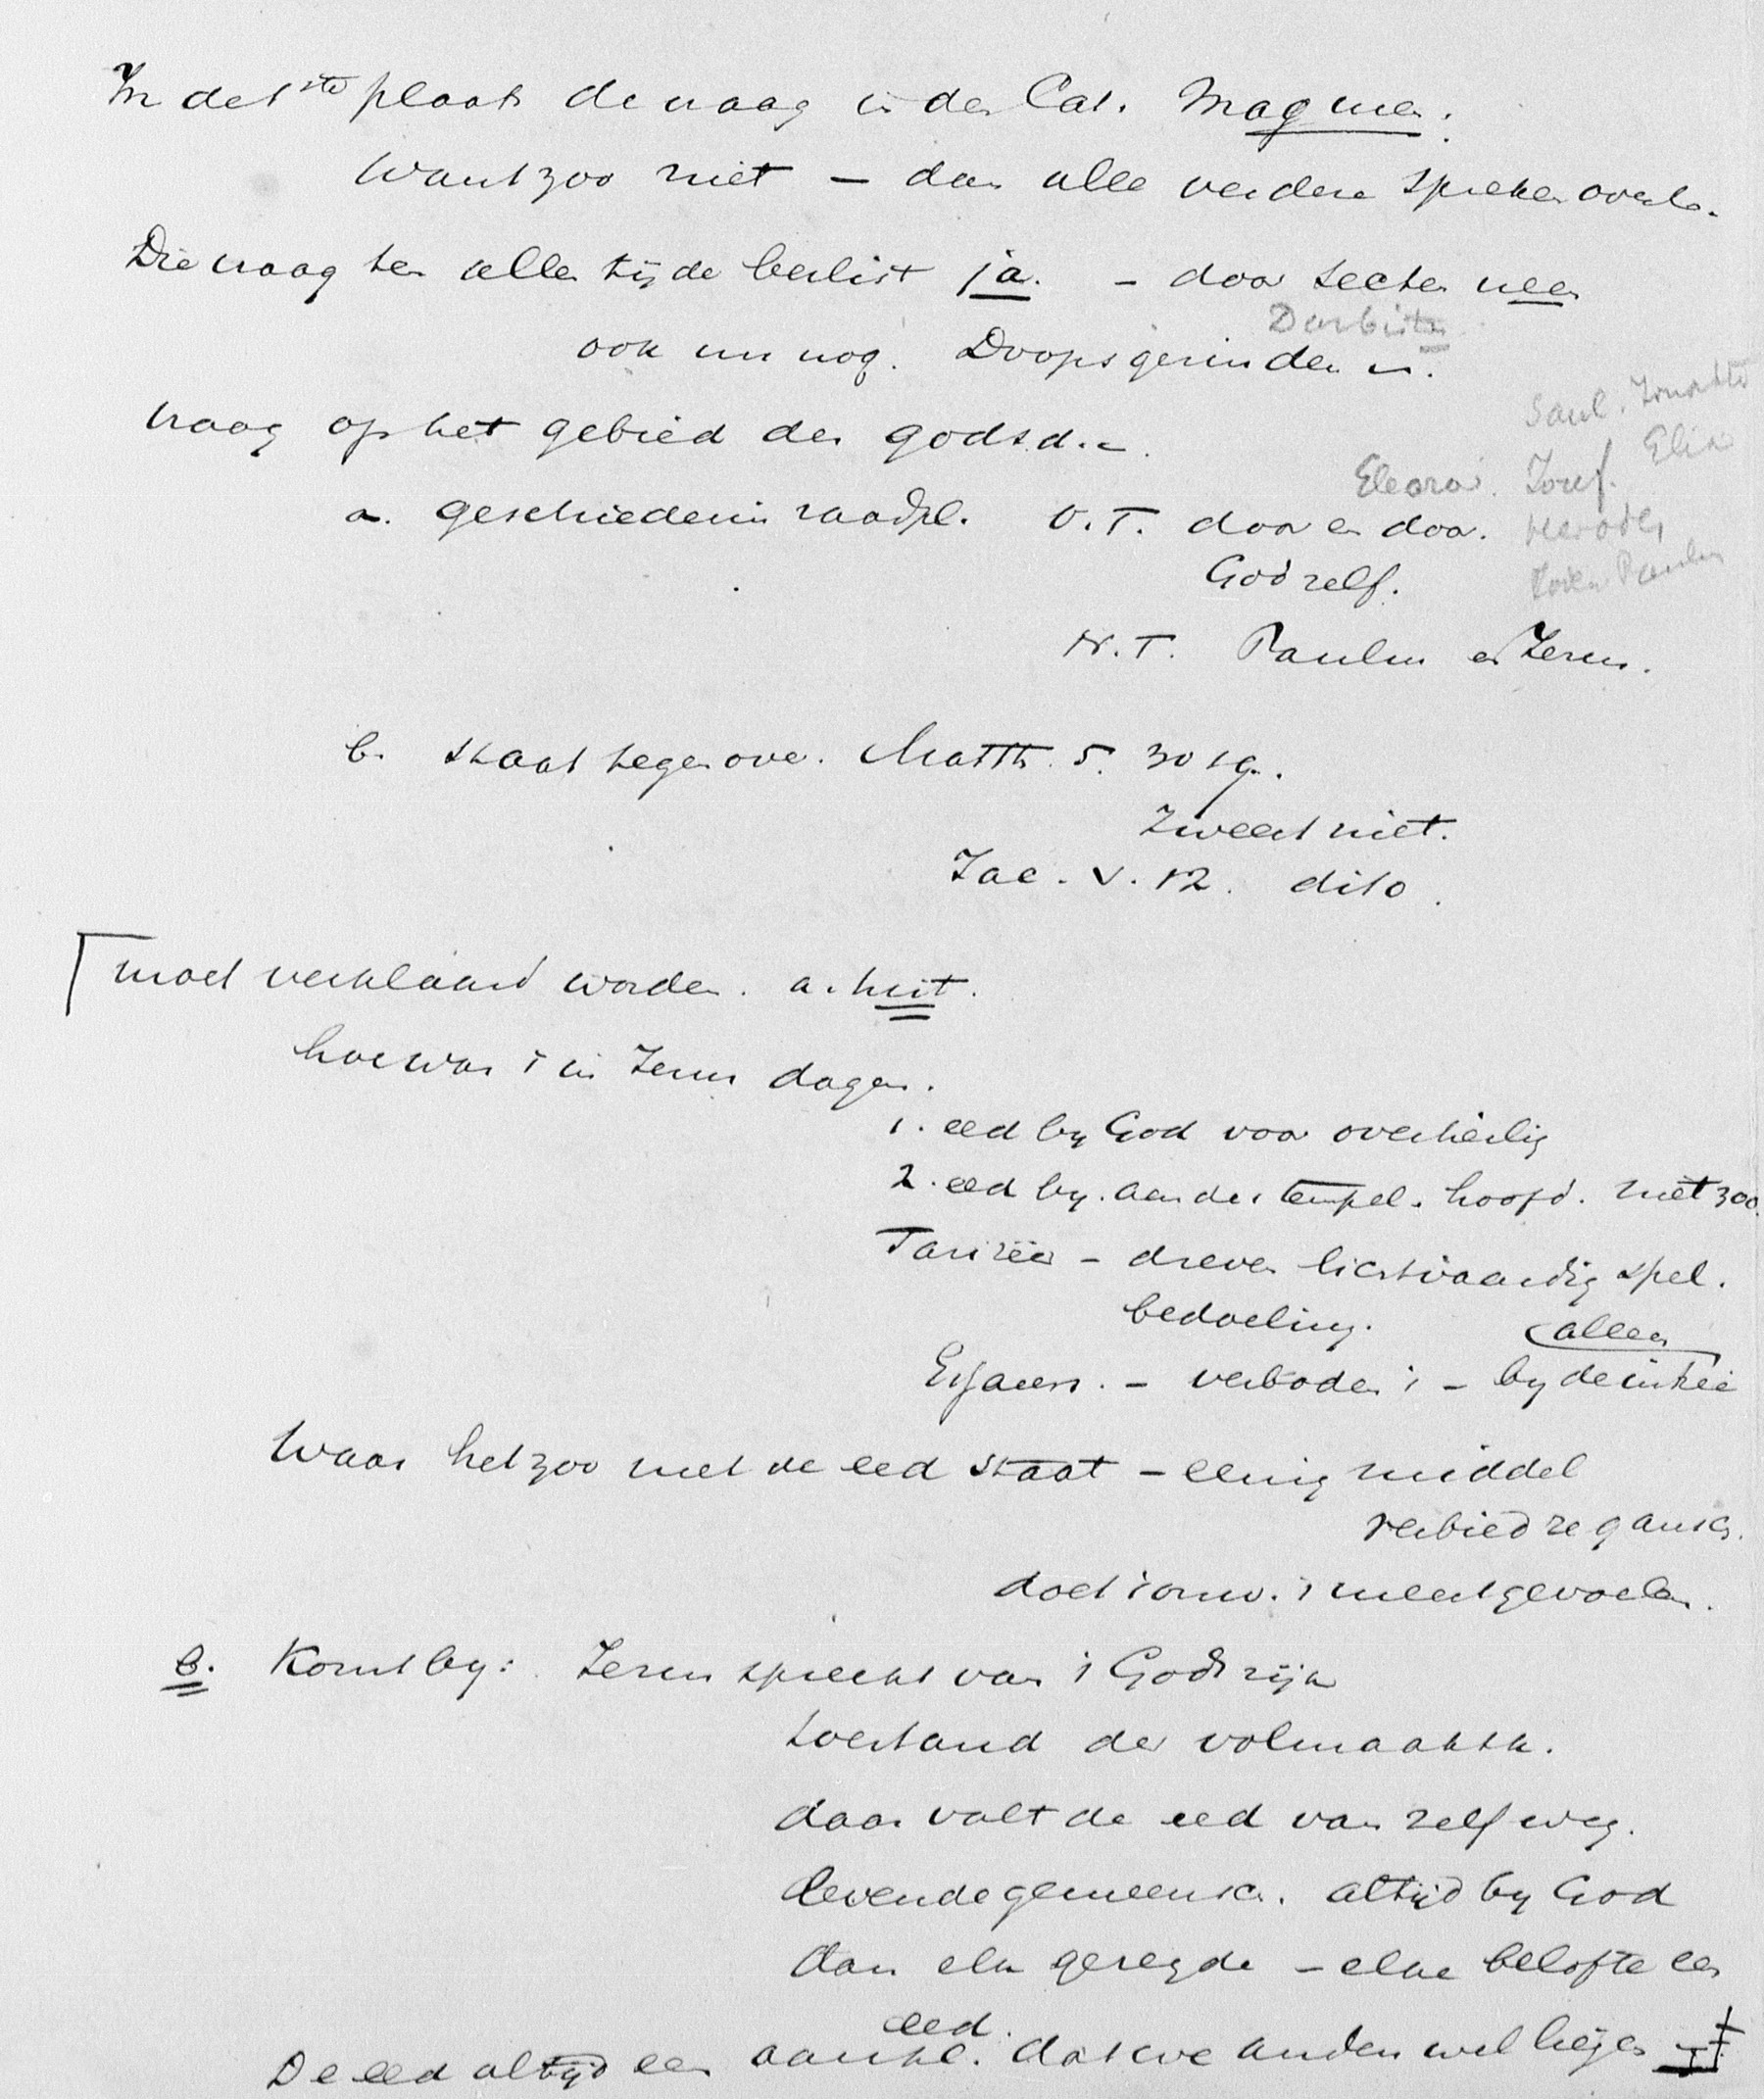 In de 1ste plaats de vraag in den Cat. Mag men.
Want zoo niet – dan alle verdere spreken overb.
Die vraag ten allen tijde beslist ja. – door secten neen
Darbisten
ook nu nog. Doopsgezinden
vraag op het gebied der godsd.
Saul. Jonathan
Elia
Eleazar. Jozef.
a. geschiedenis raadpl. O.T. door en door. Herodes
God zelf. Paulus
N.T. Paulus en Jezus.
b. staat tegenover. Matth. 5. 30 sq.
Zweert niet.
Jac. V. 12. dito.
moet verklaard worden. a. hist.
hoe was 't in Jezus dagen.
1. eed by God voor overheilig
2. eed by. aarde, tempel. hoofd. niet zoo.
Farizeën – dreven lichtvaardig spel.
bedoeling. alleen
Essaeers. – verboden 't – by de intrée
Waar het zoo met de eed staat – eenig middel
verbied ze gansch.
doet 't onw. 't meest gevoelen.
B. Komt by: Jezus spreekt van 't Godsrijk
toestand der volmaakth.
daar valt de eed van zelf weg.
levende gemeensch. altijd by God
dan elk gezegde – elke belofte een
eed.
De eed altijd een aankl. dat we anders wel liegen